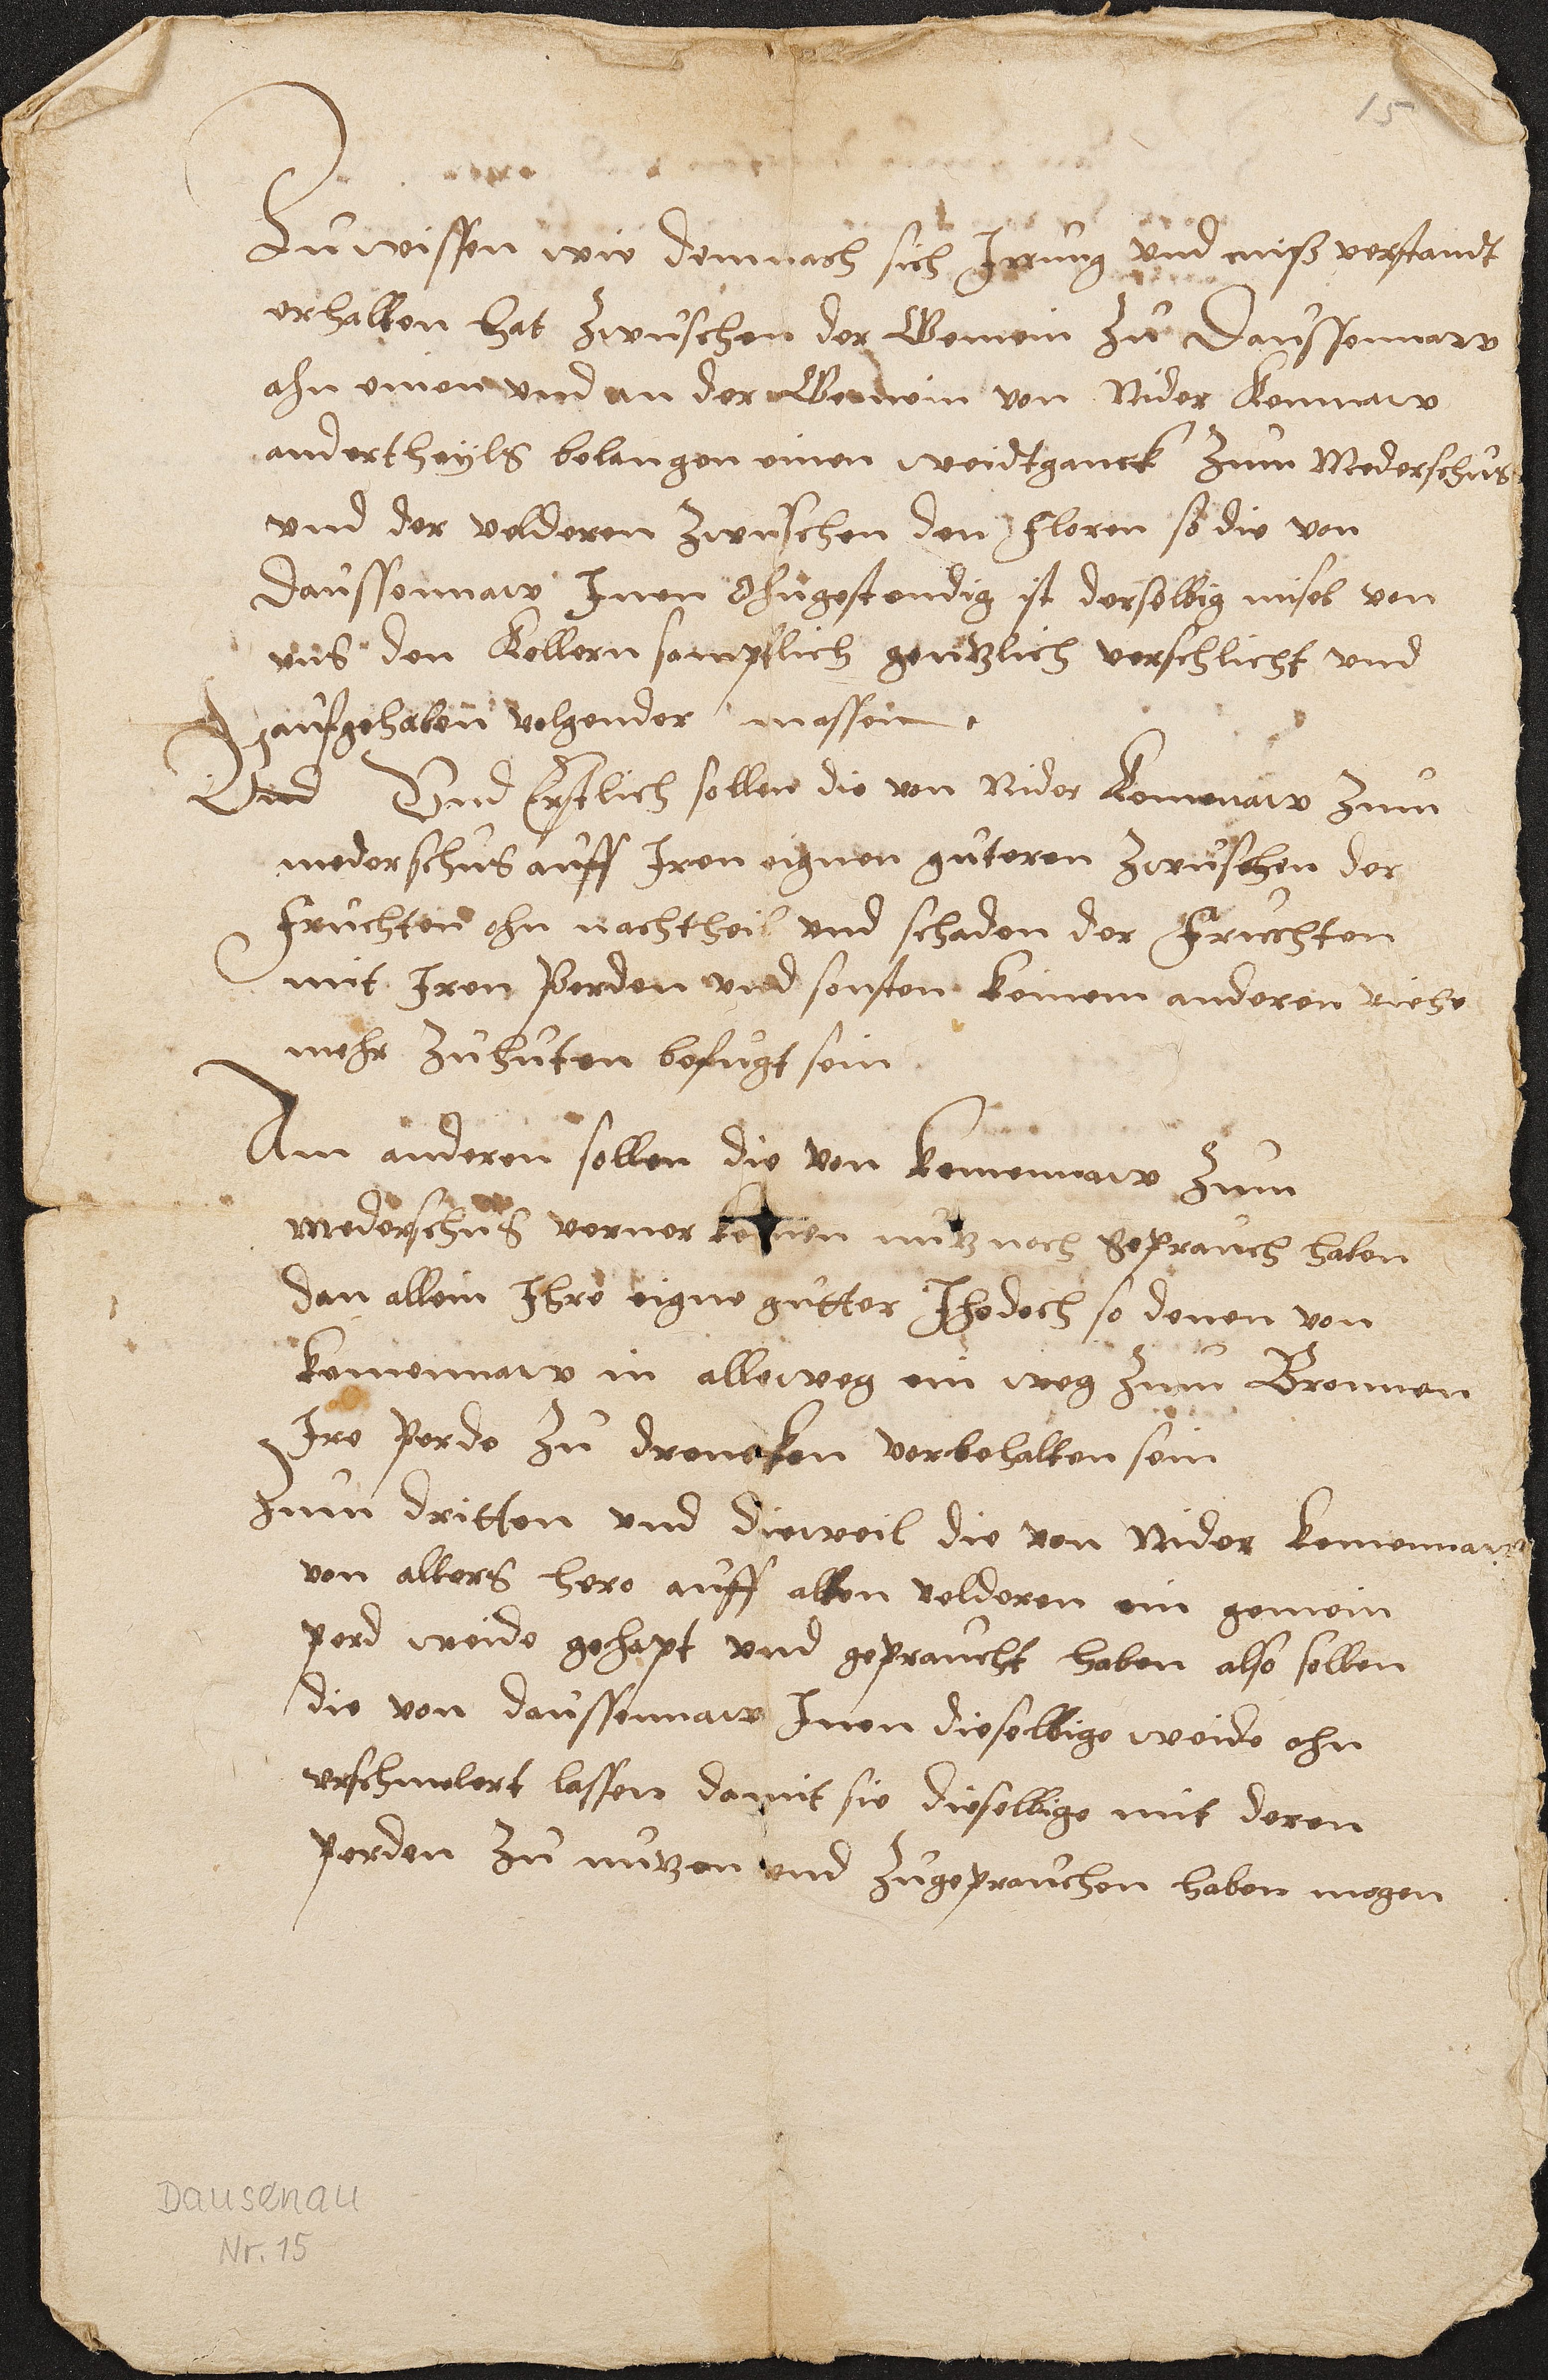 15
Zu wissen wie demnach sich Irrung und miß verstandt
erhalten hat zwuschen der Gemein zu Daussennaw
ahn einen und an der Gemein von Nider Kemnaw
andertheyls belangen einen weidtganck zum Mederschus
und der velderen zwuschen den Floren so die von
Daussennaw Inen Ohngestendig ist derselbig misel von
uns den Kellern samptlich gentzlich verschlicht und
aufgehaben volgender massen.
Und Und Erstlich sollen die von Nider Kemenaw zum
mederschus auff Iren eignen guteren zwuschen der
Fruchten ohn nachtheil und schaden der Fruchten
mit Iren Perden und sonsten keinem anderen viehe
mehr zuhuten befugt sein
Am anderen sollen die von Kemennaw zum
Mederschus verner keinen nutz noch geprauch haben
dan allein Ihre eigne gutter Jhedoch so denen von
Kemennaw in alleweg ein weg zum Bronnen
Ire Perde zu drencken vorbehalten sein
Zum dritten und dieweil die von Nider Kemennaw
von alters hero auff allen velderen ein gemein
perd weide gehapt und gepraucht haben also sollen
die von Daussennaw Inen dieselbige weide ohn
verschmelert lassen damit sie dieselbige mit deren
perden zu nutzen und zugeprauchen haben mogen
Dausenau
Nr. 15